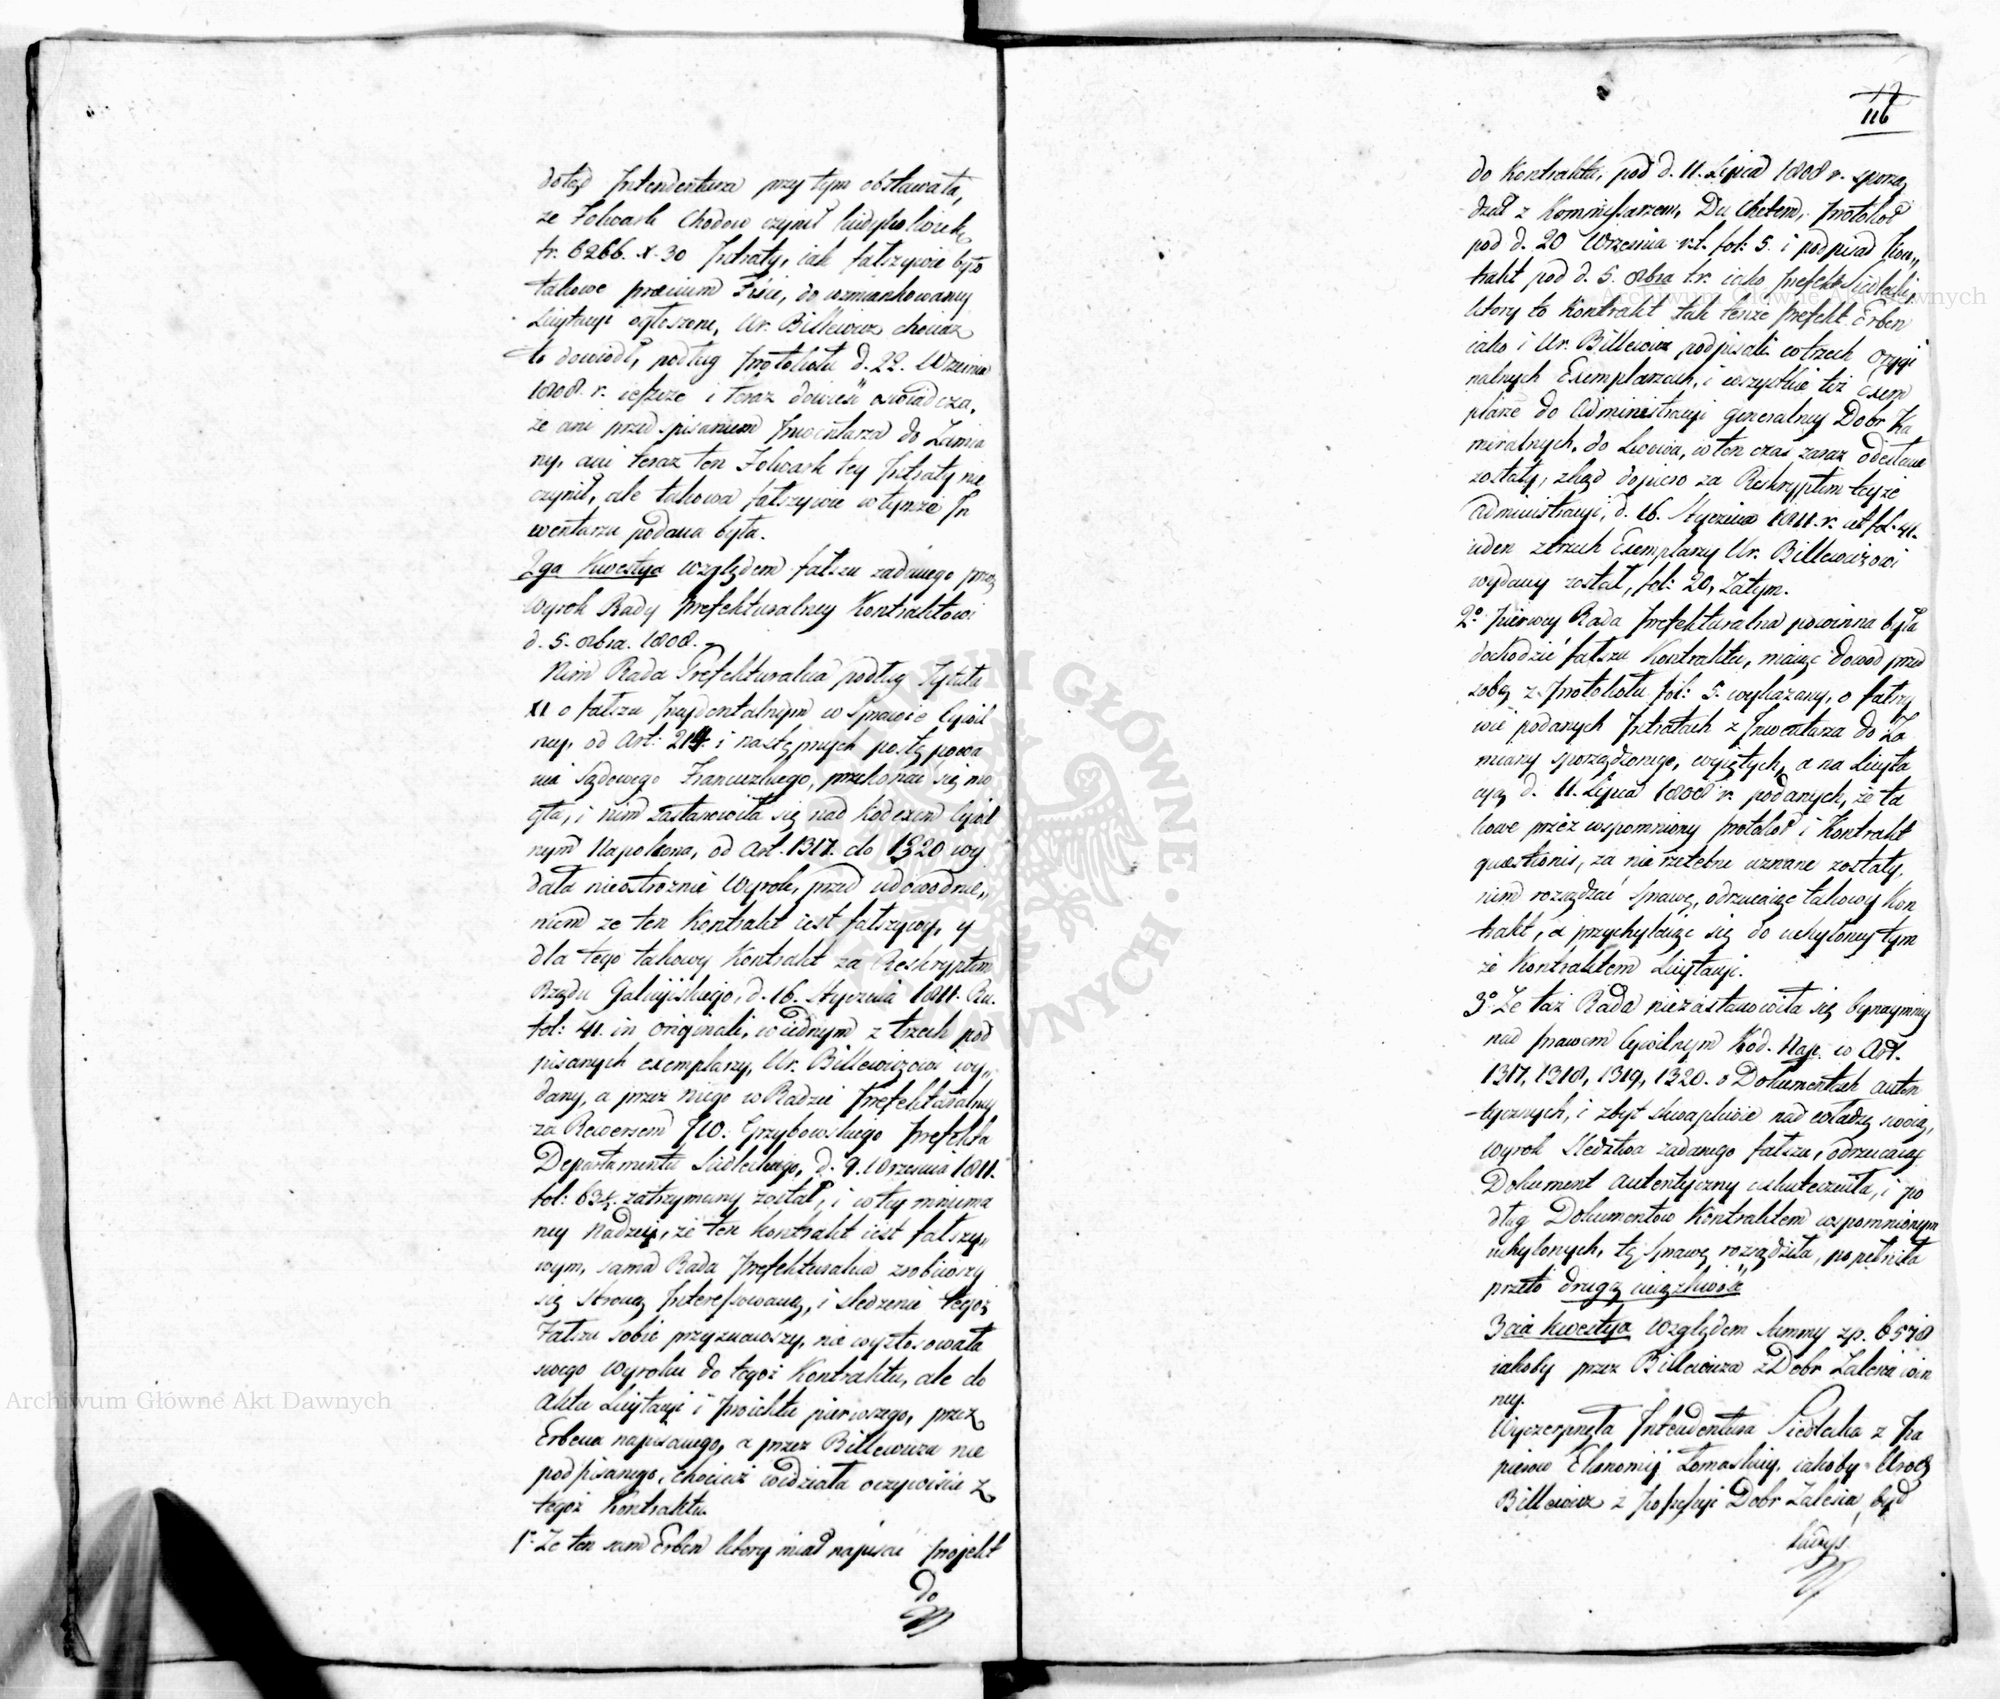 dotąd Intendentura przy tym obstawała,
że Folwark Chodow czynił kiedykolwiek
fr. 6266. x. 30 Intraty, iak fałszywie było
takowe præcium Fisci, do wzmiankowaney
Licytacyi ogłoszone, Ur. Billewicz chociaż
to dowiodł, podług Protokołu d. 22. Września
1808. r. ieszcze i teraz dowieść oświadcza,
że ani przed spisaniem Inwentarza do Zamia
ny, ani teraz ten Folwark tey Intraty nie
czynił, ale takowa fałszywie w tymże In
wentarzu podana była.
2ga Kwestya względem fałszu zadanego przez
Wyrok Rady Prefekturalney Kontraktowi
d. 5. 8bra. 1808.
Nim Rada Prefekturalna podług Tytułu
XI o fałszu Incydentalnym w Sprawie Cywil
ney, od Art: 214. i następnych postępowa
nia Sądowego Francuzkiego, przekonać się mo
gła, i nim zastanowiła się nad Kodexem Cywil
nym Napoleona, od Art. 1317. do 1320 wy
dała nieostrożnie Wyrok, przed udowodnie„
niem że ten Kontrakt iest fałszywy, y
dla tego takowy Kontrakt za Reskryptem
Rządu Galicyiskiego, d. 16. Stycznia 1811. Ru.
fol: 41. in originali, w iednym z trzech pod
pisanych exemplarzy, Ur. Billewiczowi wy„
dany, a przez niego w Radzie Prefekturalney
za Rewersem JW. Grzybowskiego Prefekta
Departamentu Siedleckiego, d. 9. Września 1811.
fol: 634. zatrzymany został, i w tey mniema
ney Nadzieji, że ten kontrakt iest fałszy„
wym, sama Rada Prefekturalna zrobiwszy
się stroną Interessowaną, i śledzenie tegoż
Fałszu sobie przyznawszy, nie wystosowała
swego Wyroku do tegoż Kontraktu, ale do
Aktu Licytacyi i Proiektu pierwszego, przez
Erbena napisanego, a przez Billewicza nie
podpisanego, chociaż widziała oczywiście z
tegoż Kontraktu.
1° Że ten sam Erben ktory miał napisać Projekt
do
116
do Kontraktu, pod d. 11. Lipca 1808 r. sporzą
dzał z Kommissarzem, Du Chetem, Protokoł
pod d. 20 Września r.t. fol: 5. i podpisał Kon„
trakt pod d. 5. 8bra t.r. iako Prefekt Siedlecki,
ktory to Kontrakt tak tenże Prefekt Erben
iako i Ur. Billewicz podpisali w trzech Orygi
nalnych Exemplarzach, i wszystkie też Exem
plarze do Administracyi generalney Dobr Ka
meralnych, do Lwowa, w ten czas zaraz odesłane
zostały, zkąd dopiero za Reskryptem teyże
Administracyi, d. 16. Stycznia 1811. r. ad fol. 41.
ieden z trzech Exemplarzy Ur. Billewiczowi
wydany został, fol: 20, Zatym.
2° Pierwey Rada Prefekturalna powinna była
dochodzić fałszu Kontraktu, maiąc dowod przed
sobą z Protokołu fol: 5. wykazany, o fałszy
wie podanych Intratach z Inwentarza do Za
miany sporządzonego, wyiętych, a na Licyta
cyą d. 11. Lipca 1808 r. podanych, że ta
kowe przez wspomniony Protokoł i Kontrakt
quæstionis, za nierzetelne uznane zostały,
nim rozsądzać Sprawę, odrzucaiąc takowy Kon
trakt, a przychylaiąc się do uchyloney tym
że Kontraktem Licytacyi.
3° Że taż Rada niezastanowiła się bynaymniey
nad Prawem Cywilnym Kod. Nap. w Art.
1317, 1318, 1319, 1320. o Dokumentach auten
tycznych, i zbyt skwapliwie nad władzę swoią,
wyrok śledztwa zadanego fałszu, odrzucaiąc
Dokument Autentyczny uskuteczniła, i po
dług Dokumentow Kontraktem wspomnionym
uchylonych, tę Sprawę rozsądziła, popełniła
przeto drugą uciążliwość
3cia kwestya Względem Summy zp. 6578
iakoby przez Billewicza z Dobr Zalesia win
ney.
Wyczerpnęła Intendentura Siedlecka z Pa
pierow Ekonomij Łomaskiey, iakoby Uroz
Billewicz z possessyi Dobr Zalesia, był
kiedyś
Archiwum Główne Akt Dawnych
Archiwum Główne Akt Dawnych